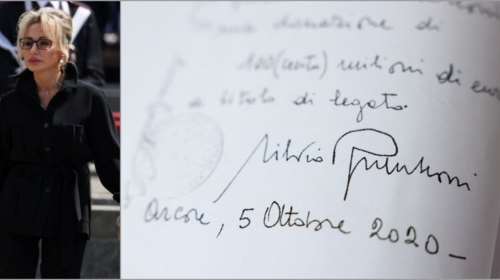 una donazione di
100 (cento) milioni di eu
a titolo di legato.
Silvio Berlusconi
Arcore, 5 Ottobre 2020